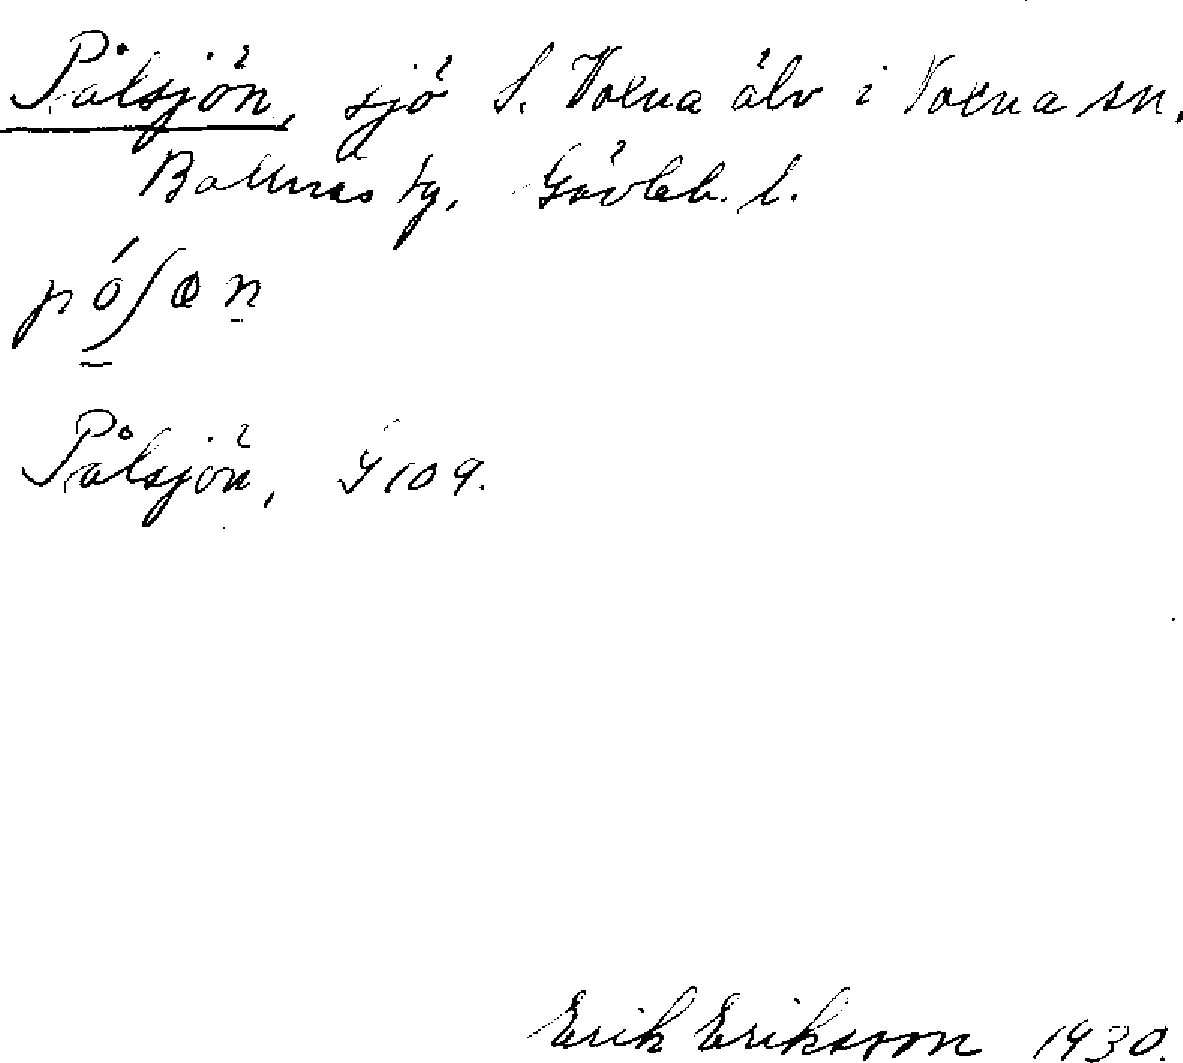 Pålsjön, sjö S. Voxna älv i Voxna sn,
Bollnäs tg, Gävleb. l.
Pålsjön, G 109.
Erik Eriksson 1930.